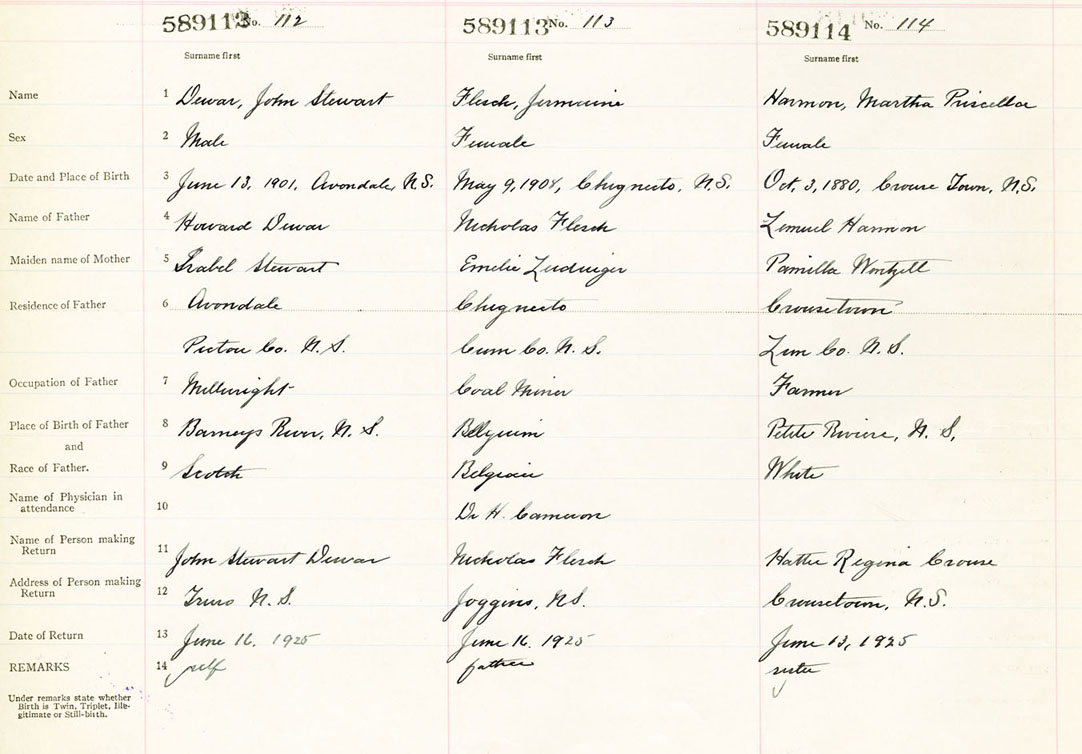 589113 No. 112 589113 No. 113 589114 No. 114
Surname first Surname first Surname first
Name 1 Dewar, John Stewart Flesch, Jermaine Harmon, Martha Priscella
Sex 2 Male Female Female
Date and Place of Birth 3 June 13, 1901, Avondale, N.S. May 9, 1904, Chignecto, N.S. Oct, 3, 1880, Crouse Town, N.S.
Name of Father 4 Howard Dewar Nicholas Flesch Lemuel Harmon
Maiden name of Mother 5 Isabel Stewart Emelie Pamilla Wentzell
Residence of Father 6 Avondale Chignecto Crousetown
Pictou Co. N.S. Cum Co. N.S. Lun Co. N.S.
Occupation of Father 7 Millwright Coal Miner Farmer
Place of Birth of Father 8 Barneys River, N.S. Belgium Petite Riviere, N.S.
and
Race of Father. 9 Scotch Belgian White
Name of Physician in
attendance 10 Dr H. Cameron
Name of Person making
Return 11 John Stewart Dewar Nicholas Flesch Hattie Regina Crouse
Address of Person making
Return 12 Truro N.S. Joggins, N.S. Crousetown, N.S.
Date of Return 13 June 16, 1925 June 16, 1925 June 13, 1925
REMARKS 14 self father sister
Under remarks state whether
Birth is Twin, Triplet, Ille-
gitimate or Still-birth.